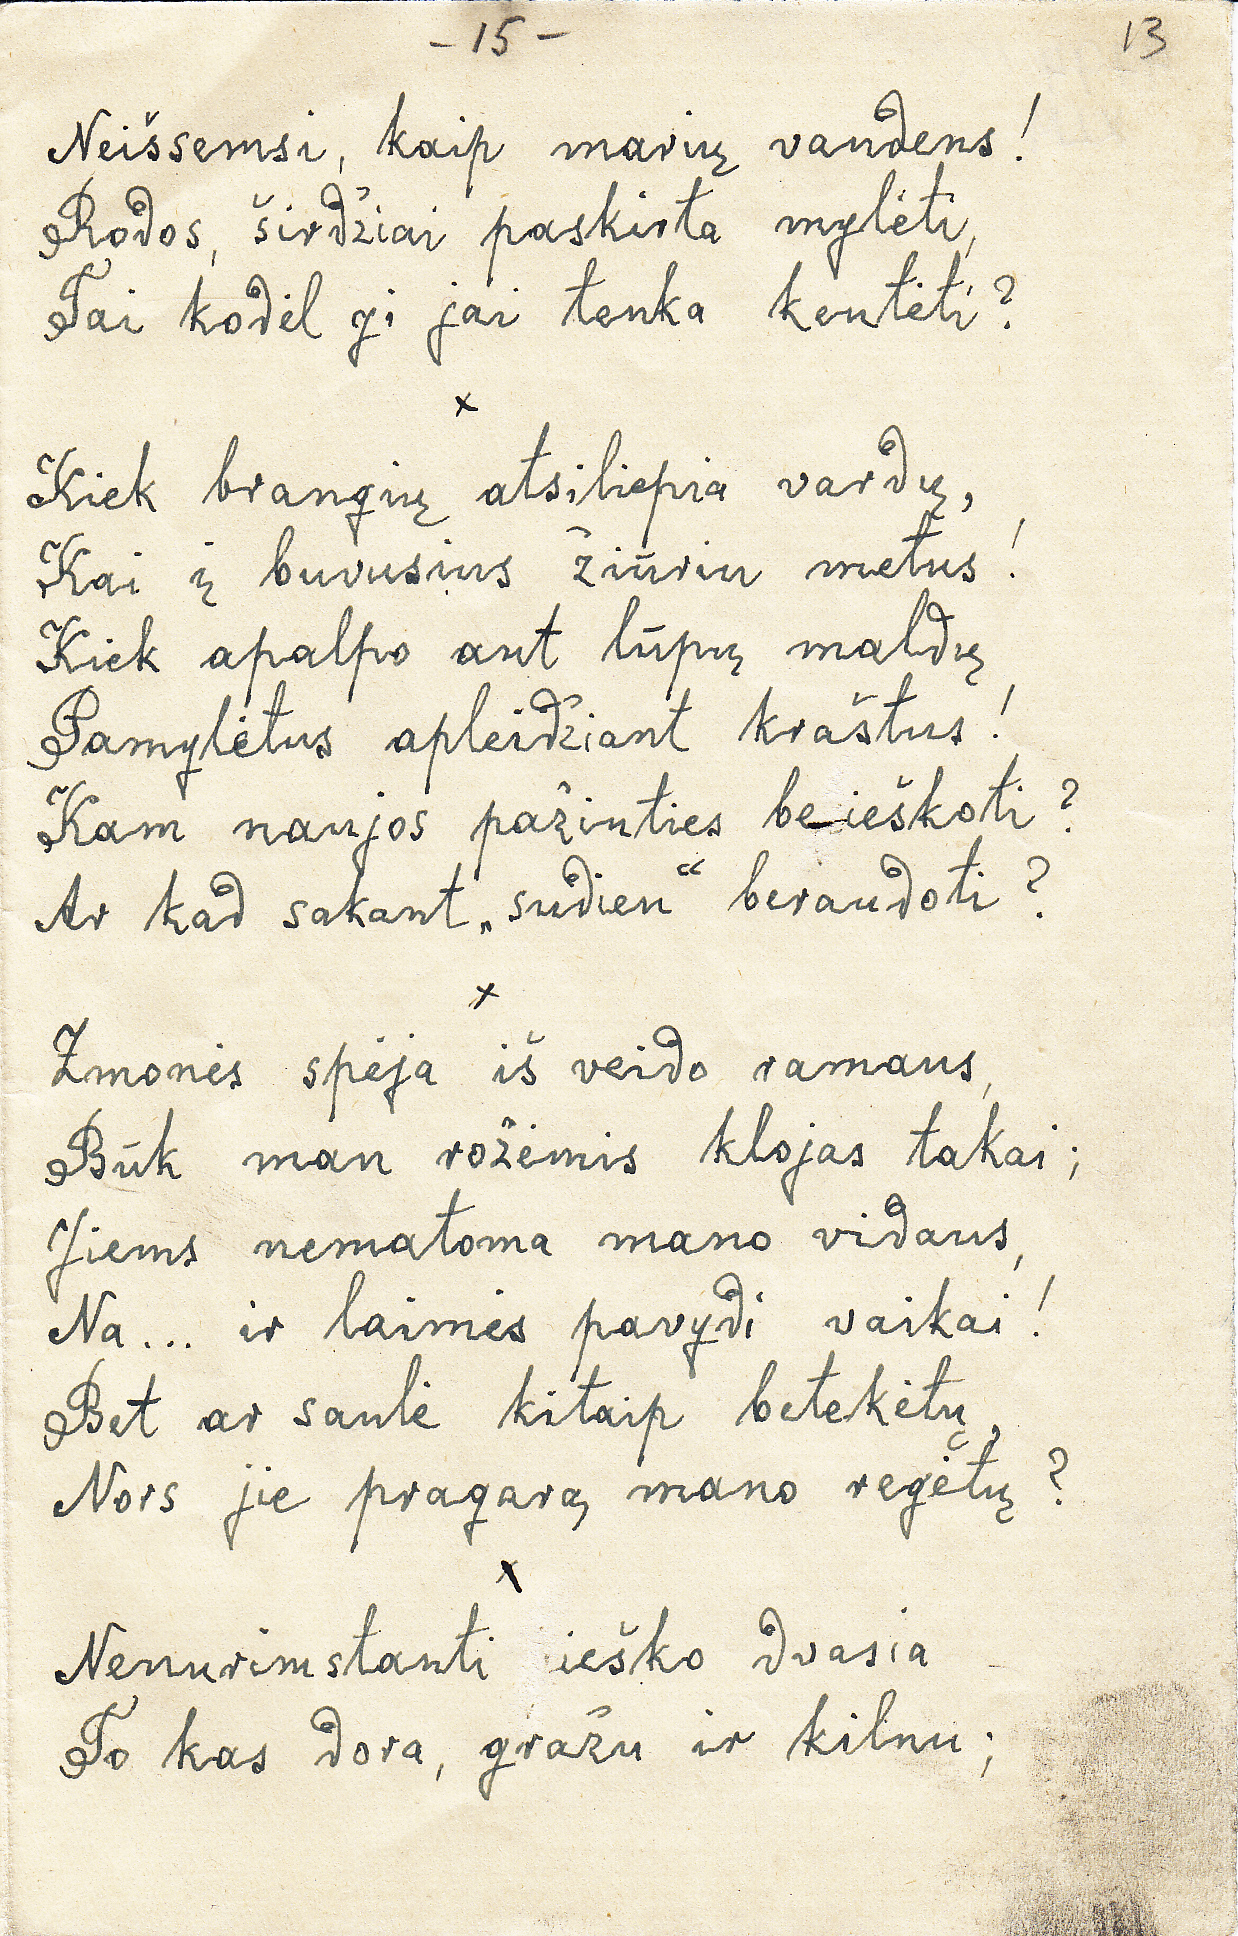 - 15 -
13
Neišsemsi, kaip marių vandens!
Rodos, širdžiai paskirta mylėti,
Tai kodėl gi jai tenka kentėti?
x
Kiek brangių atsiliepia vardų,
Kai į buvusius žiūriu metus!
Kiek apalpo ant lūpų maldų
Pamylėtus apleidžiant kraštus!
Kam naujos pažinties beieškoti?
Ar kad sakant „sudieu“ beraudoti?
x
Žmonės spėja iš veido ramaus,
Būk man rožėmis klojas takai;
Jiems nematoma mano vidaus,
Na... ir laimės pavydi vaikai!
Bet ar saulė kitaip betekėtų,
Nors jie pragarą mano regėtų?
x
Nenurimstanti ieško dvasia
To kas dora, gražu ir kilnu;